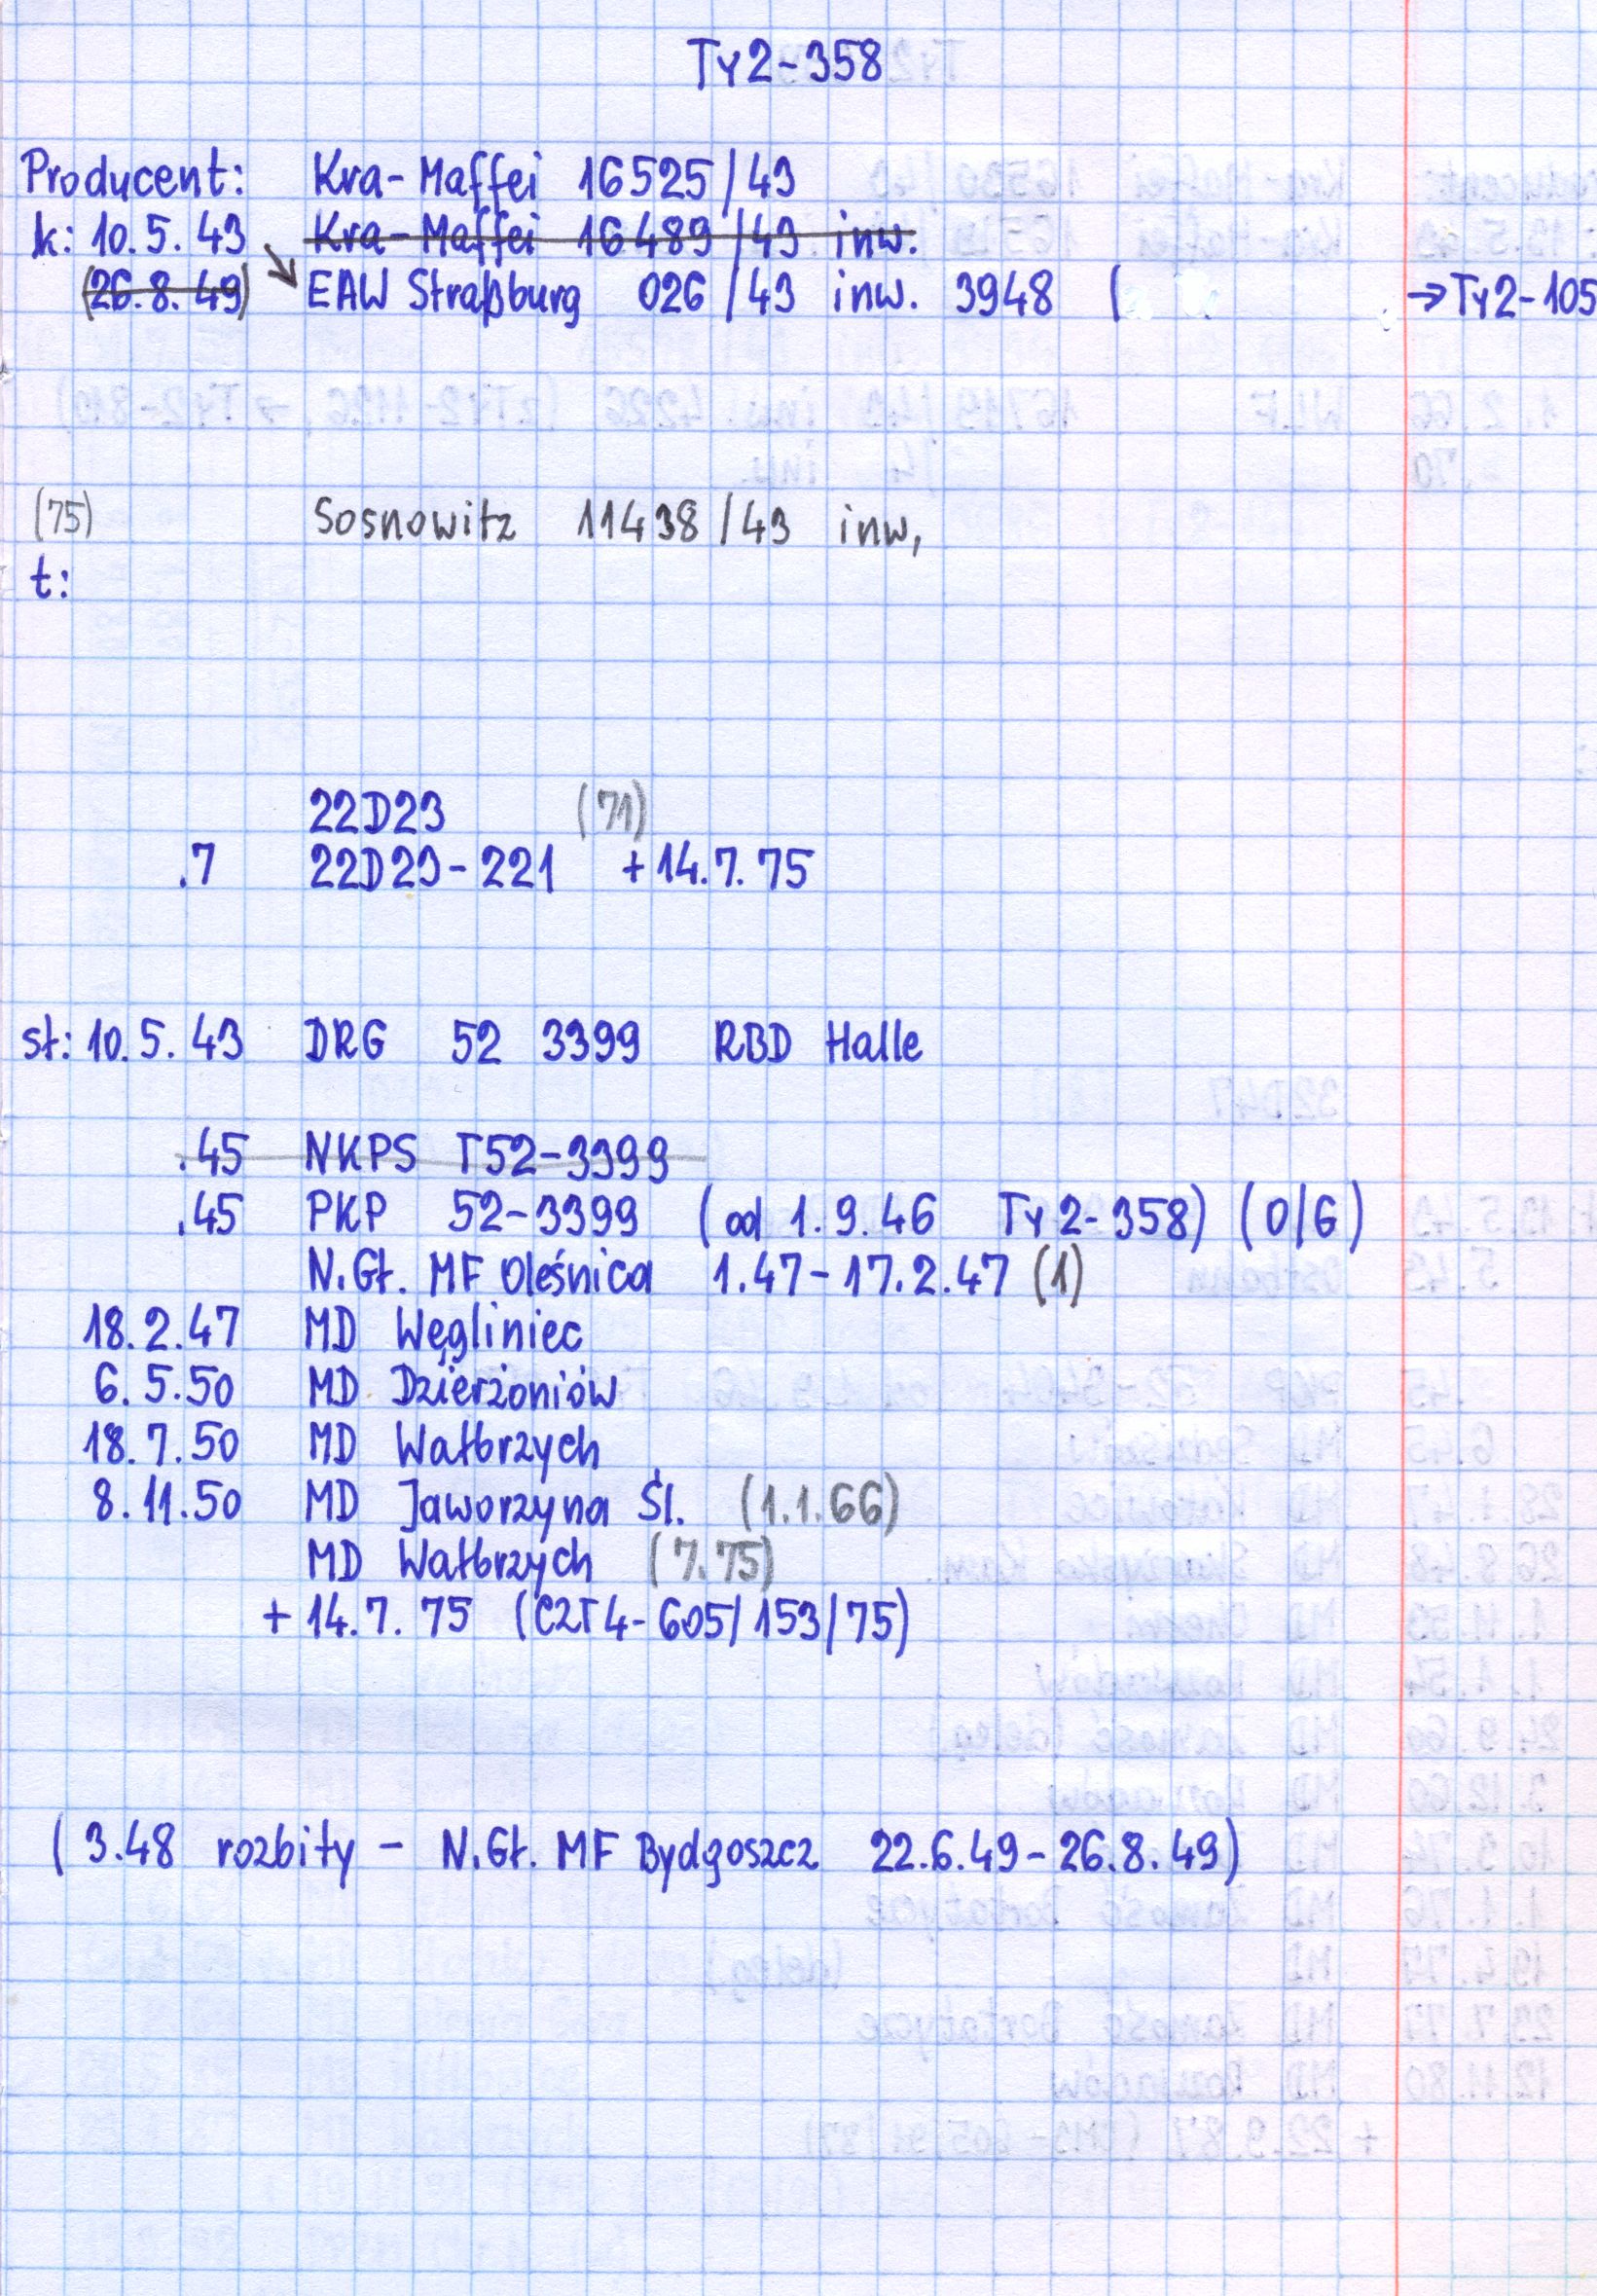 Ty2-358
Producent: Kra-Maffei 16525/43
k: 10.5.43 Kra-Maffei 16489/43 inw.
(26.8.49) EAW Straßburg 026/43 inw. 3948 ( → Ty2-105
(75) Sosnowitz 11438/43 inw,
t:
22D23 (71)
.7 22D23-221 +14.7.75
st: 10.5.43 DRG 52 3399 RBD Halle
.45 NKPS T52-3399
.45 PKP 52-3399 (od 1.9.46 Ty2-358) (O/G)
N.Gł. MF Oleśnica 1.47-17.2.47 (1)
18.2.47 MD Węgliniec
6.5.50 MD Dzierżoniów
18.7.50 MD Wałbrzych
8.11.50 MD Jaworzyna Śl. (1.1.66)
MD Wałbrzych (7.75)
+ 14.7.75 (CZT4-605/153/75)
(3.48 rozbity - N.Gł. MF Bydgoszcz 22.6.49-26.8.49)